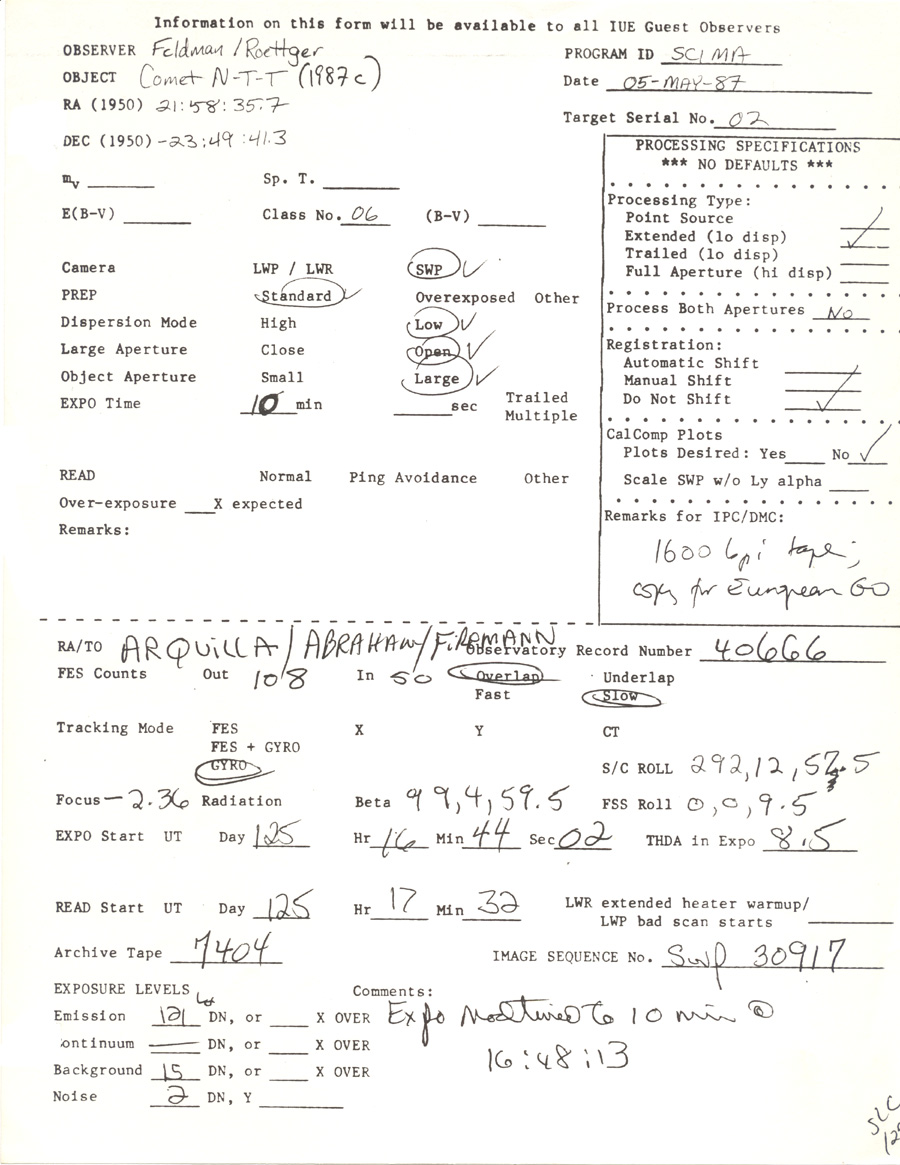 Information on this form will be available to all IUE Guest Observers
OBSERVER Feldman / Roettger
PROGRAM ID SCIMA
OBJECT Comet N-T-T (1987c)
Date 05-MAY-87
RA (1950) 21:58:35.7
Target Serial No. 02
DEC (1950) -23:49:41.3
PROCESSING SPECIFICATIONS
*** NO DEFAULTS ***
mv ______ Sp. T. ______
E(B-V) ______ Class No. 06 (B-V) ______
Processing Type:
Point Source
Extended (lo disp) ✓
Trailed (lo disp)
Full Aperture (hi disp)
Camera LWP / LWR SWP ✓
PREP Standard ✓ Overexposed Other
Process Both Apertures No
Dispersion Mode High Low ✓
Large Aperture Close Open ✓
Object Aperture Small Large ✓
EXPO Time 10 min ______ sec Trailed
Multiple
Registration:
Automatic Shift
Manual Shift
Do Not Shift ✓
CalComp Plots
Plots Desired: Yes____ No ✓
Scale SWP w/o Ly alpha ____
READ Normal Ping Avoidance Other
Over-exposure ___X expected
Remarks:
Remarks for IPC/DMC:
1600 bpi tape;
copy for European GO
RA/TO ARQUILLA/ABRAHAM/FIREMANN
Observatory Record Number 40666
FES Counts Out 108 In 50 Overlap Underlap
Fast Slow
Tracking Mode FES X Y CT
FES + GYRO
GYRO
S/C ROLL 292,12,57.5
Focus -2.36 Radiation Beta 99,4,59.5 FSS Roll 0,0,9.5
EXPO Start UT Day 125 Hr 16 Min 44 Sec 02 THDA in Expo 8.5
READ Start UT Day 125 Hr 17 Min 32 LWR extended heater warmup/
LWP bad scan starts ______
Archive Tape 7404 IMAGE SEQUENCE No. SWP 30917
EXPOSURE LEVELS Comments:
Emission 121 DN, or ____ X OVER
Expo 10 min @
16:48:13
ontinuum ____ DN, or ____ X OVER
Background 15 DN, or ____ X OVER
Noise 2 DN, Y ______